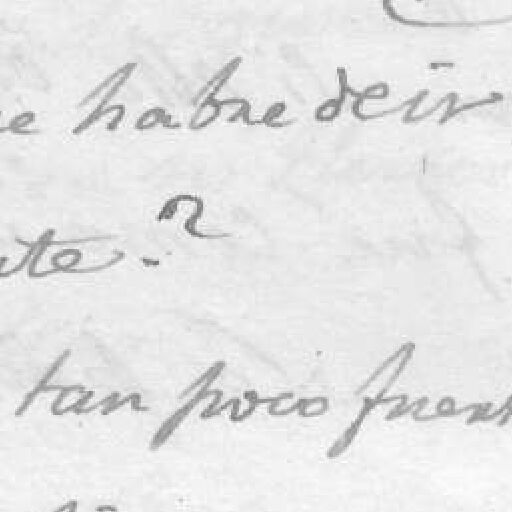 e habre de ir
te.
tan poco fuer